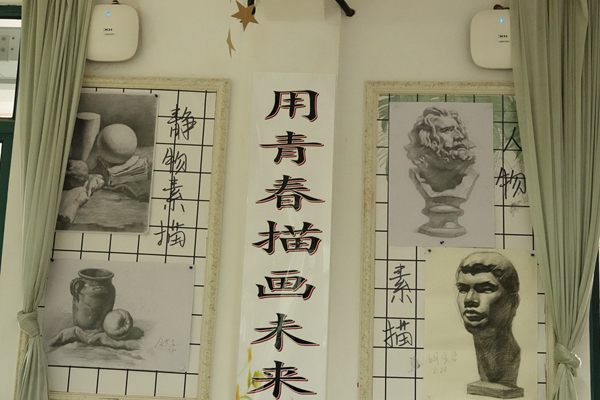 静物素描
用青春描画未来
人物
素描